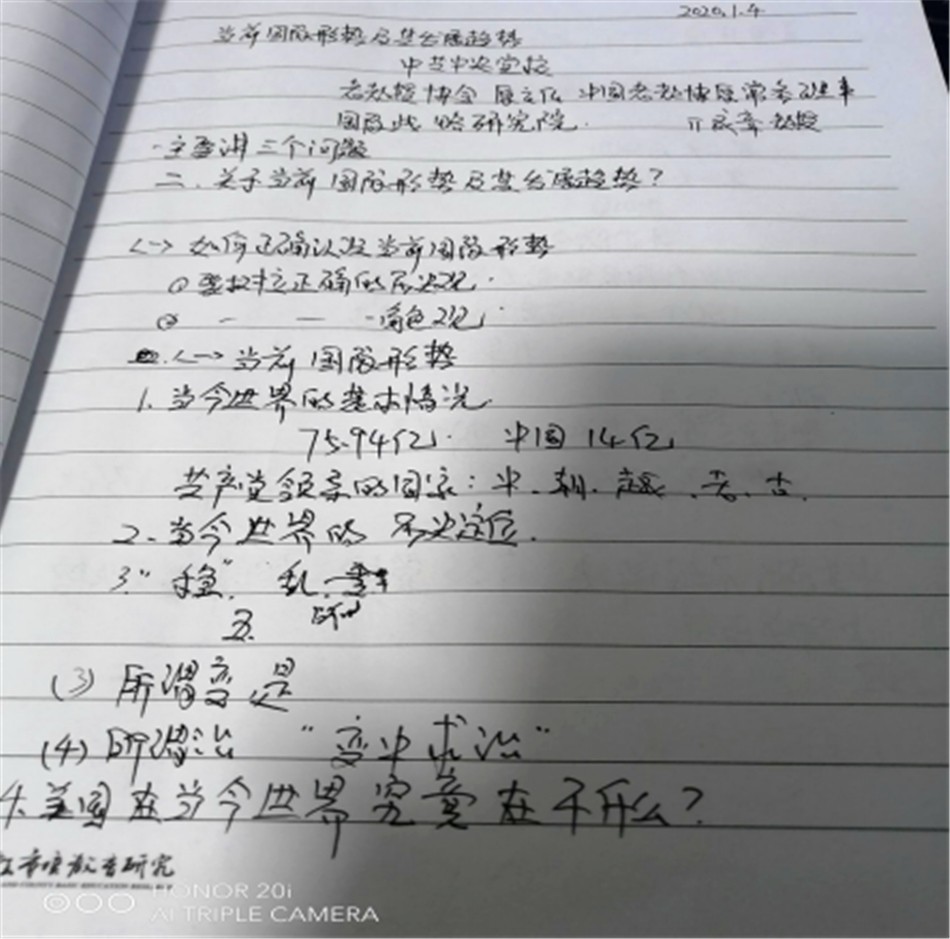 2020.1.4
当前国际形势及其发展趋势
中共中央党校
老教授协会 原主任 中国老教协原常务理事
国际战略研究院. 教授
一主要讲三个问题
二.关于当前国际形势及其发展趋势?
<一>如何正确认识当前国际形势
①要树立正确的历史观.
② — — -角色观
<一>当前国际形势
1.当今世界的基本情况.
75.94亿. 中国14亿
共产党领导的国家:中.朝.越.老.古.
2.当今世界的 历史定位.
3."稳". 乱.
(3)所谓变是
(4)所谓治 "变中求治"
4.美国在当今世界究竟在干什么?
教育研究
HONOR 20i
AI TRIPLE CAMERA